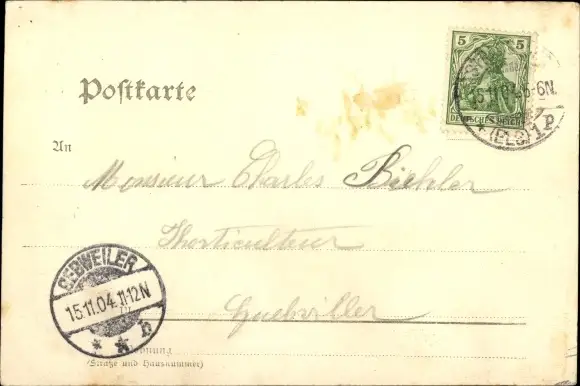 5 5
DEUTSCHES REICH
15.11.04.5-6N.
* (ELS) 1 P
Postkarte
An
Monsieur Charles
Horticulteur
Guebviller
GEBWEILER
15.11.04.11-12N
* * b
Wohnung
(Straße und Hausnummer)